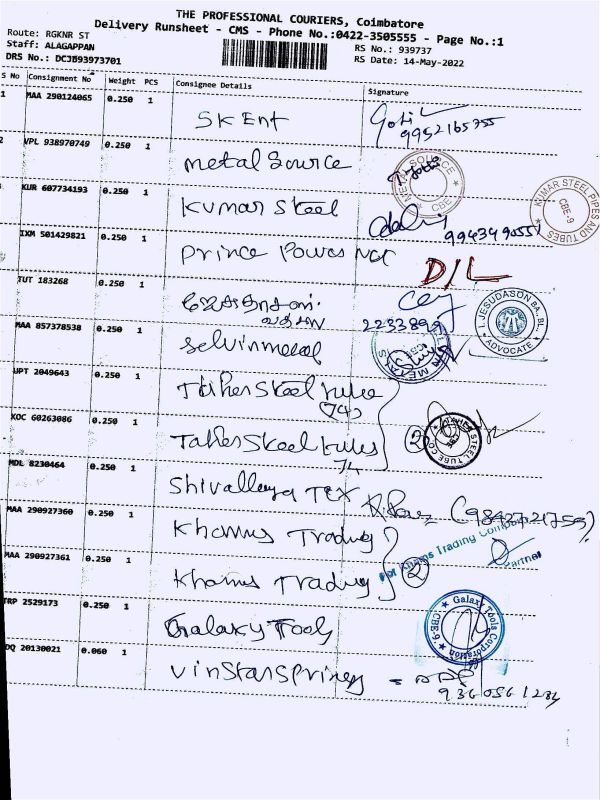 THE PROFESSIONAL COURIERS, Coimbatore
Delivery Runsheet - CMS - Phone No.:0422-3505555 - Page No.:1
Route: RGKNR ST
RS No.: 939737
Staff: ALAGAPPAN
RS Date: 14-May-2022
DRS No.: DCJB93973701
S No Consignment No Weight PCS Consignee Details Signature
1 MAA 290124065 0.250 1
SK Ent
9952165755
2 VPL 938970749 0.250 1
metal Source
METAL SOURCE CBE
3 KUR 607734193 0.250 1
Kumar Steel
KUMAR STEEL PIPES AND TUBES CBE-9
IXM 501429821 0.250 1
Prince Power
D/L
TUT 183268 0.250 1
I. JESUDASON BA, BL. ADVOCATE
MAA 857378538 0.250 1
Selvinmetal
METAL
UPT 2049643 0.250 1
Taher Steel tubes
(74)
KOC 60263086 0.250 1
Taher Steel tubes
74
(2)
STEEL TUBE CO
MDL 8230464 0.250 1
TEX
MAA 290927360 0.250 1
Khamus Trading
For Khams Trading Company
Partner
MAA 290927361 0.250 1
Khamus Trading
(2)
TRP 2529173 0.250 1
Galaxy Tools
Galaxy Tools Corporation CBE-6.
DQ 20130021 0.060 1
Vinstarspring